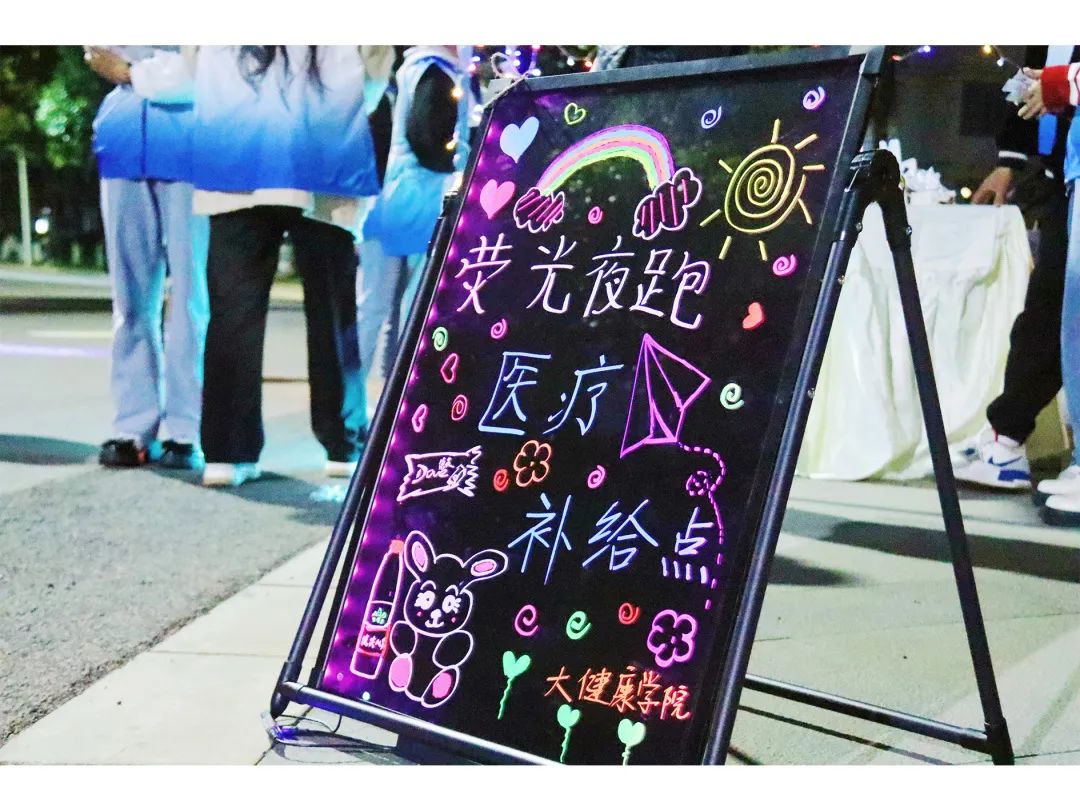 荧光夜跑
医疗
补给点
大健康学院